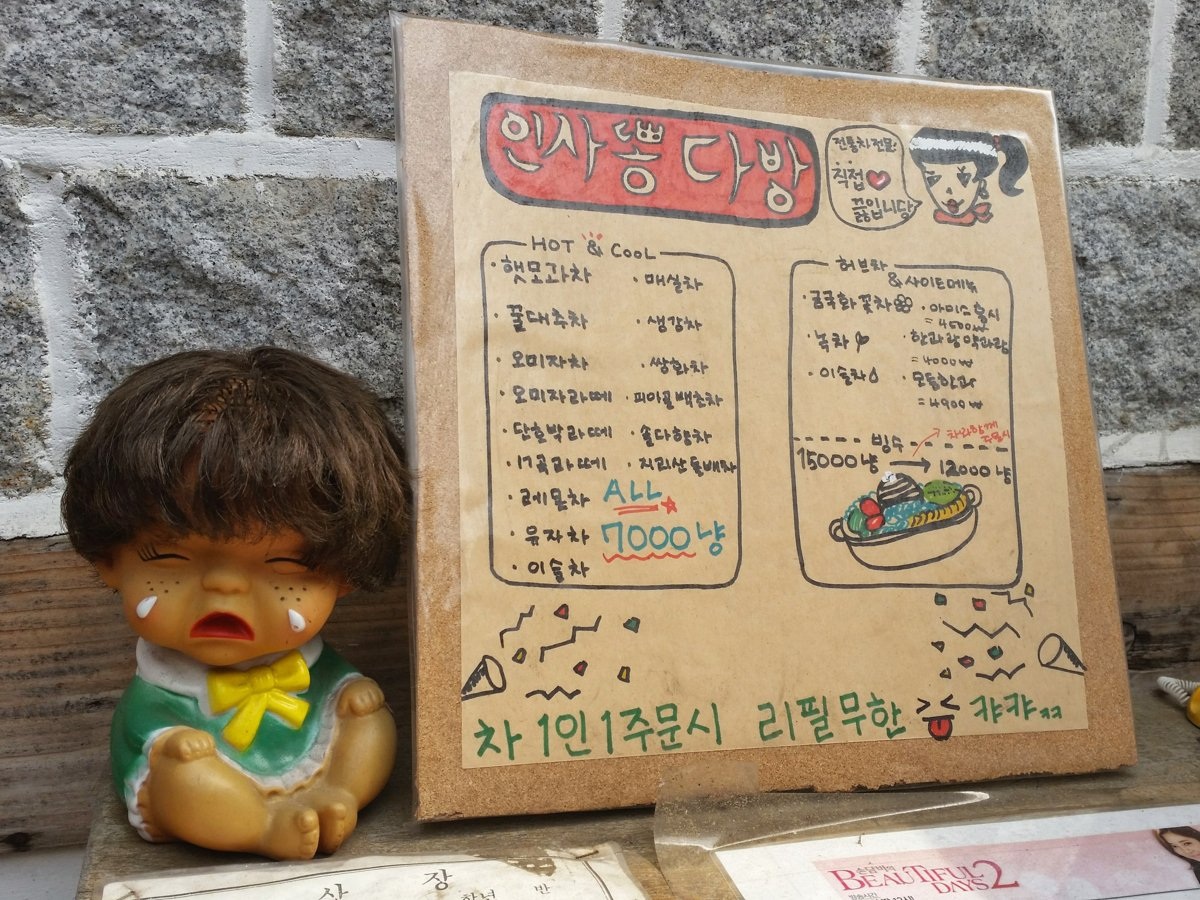 인사뽕다방
전통차전문!
직접
끓입니당
HOT & COOL
·햇모과차 ·매실차
·꿀대추차 ·생강차
·오미자차 ·쌍화차
·오미자라떼 ·피아골백초차
·단호박라떼 ·솔다향차
·17곡라떼 ·지리산돌배차
·레몬차 ALL
·유자차 7000냥
·이슬차
허브차
&사이드메뉴
·금국화꽃차 ·아이스홍시
=4500₩
·녹차 ·한과랑약과랑
=4000₩
·이슬차 ·모듬한과
=4900₩
빙수 차와함께
주문시
15000냥 → 12000냥
차 1인 1주문시 리필무한 캬캬ㅋㅋ
상 장
학년 반
손담비의
BEAUTIFUL
DAYS 2